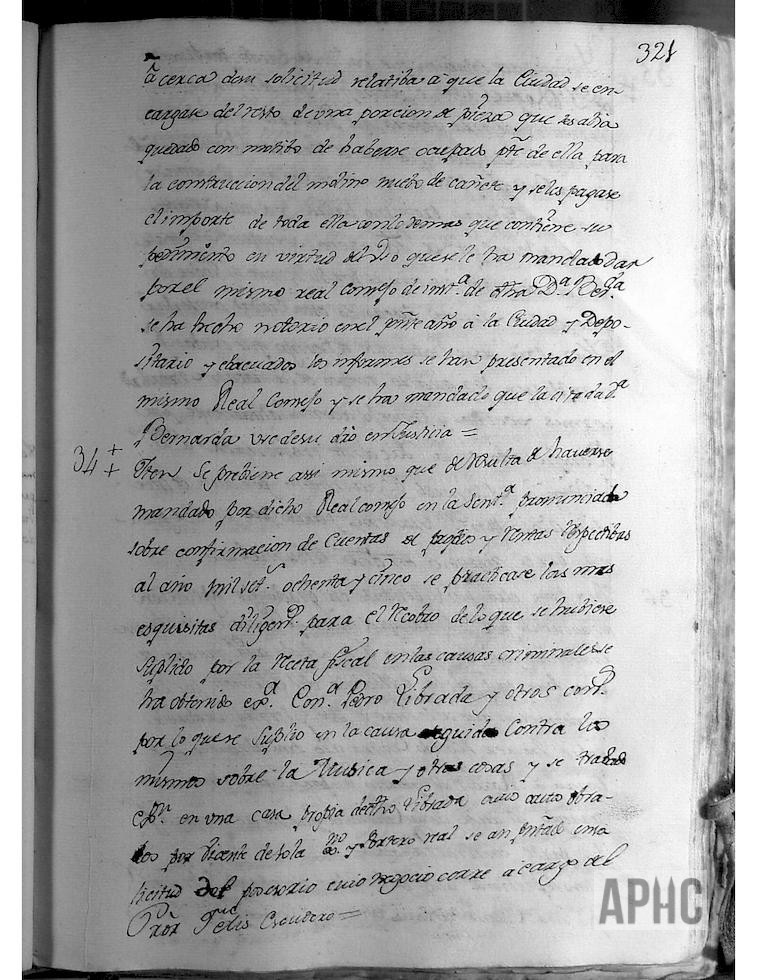 321
acerca desu solicitud relatiba a que la Ciudad se en-
cargase del resto de vna porcion de pieza que les abia
quedado con motibo de haberse ocupado pte de ella para
la construccion del molino nuebo de cañete y seles pagase
el importe de toda ella conlodemas que contiene su
pedimento en virtud del qe se le ha mandado dar
por el mismo real Consejo de instª de dha Dª Berda
se ha hecho notorio en el preste año a la Ciudad y Depo-
sitario y ebacuados los informes se han presentado en el
mismo Real Consejo y se ha mandado que la citada dª
Bernarda vse desu dro en Justicia =
34 Iten Se prebiene assi mismo que de resulta de haverse
mandado por dicho Real consejo en la Sentª pronunciada
sobre confirmacion de Cuentas de propio y rentas respectibas
al año mil sets ochenta y cinco se practicase las mas
esquisitas diligens para el recobro delo que se hubiere
suplido por la receta fiscal en las causas criminales se
ha obtenido exª Conª Pedro Librada y otros consס
por lo que se suplio en la causa seguida Contra los
mismos sobre la Musica y otras cosas y se trabado
exn en vna casa propia de dho Librada cuio auto obra-
do por Vicente de sola no y Portero real se an
licitud del posesorio cuio negocio corre a cargo del
Pror Escudero =
APHC